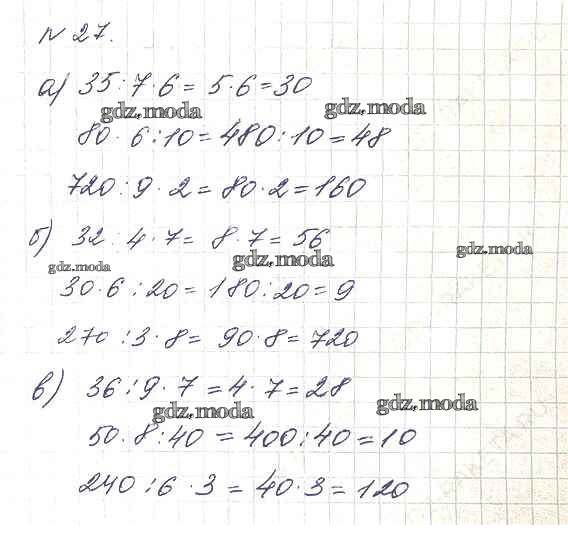 № 27.
а) 35 : 7 · 6 = 5 · 6 = 30
gdz.moda gdz.moda
80 · 6 : 10 = 480 : 10 = 48
720 : 9 · 2 = 80 · 2 = 160
б) 32 : 4 · 7 = 8 · 7 = 56
gdz.moda gdz.moda gdz.moda
30 · 6 : 20 = 180 : 20 = 9
270 : 3 · 8 = 90 · 8 = 720
в) 36 : 9 · 7 = 4 · 7 = 28
gdz.moda gdz.moda
50 · 8 : 40 = 400 : 40 = 10
240 : 6 · 3 = 40 · 3 = 120